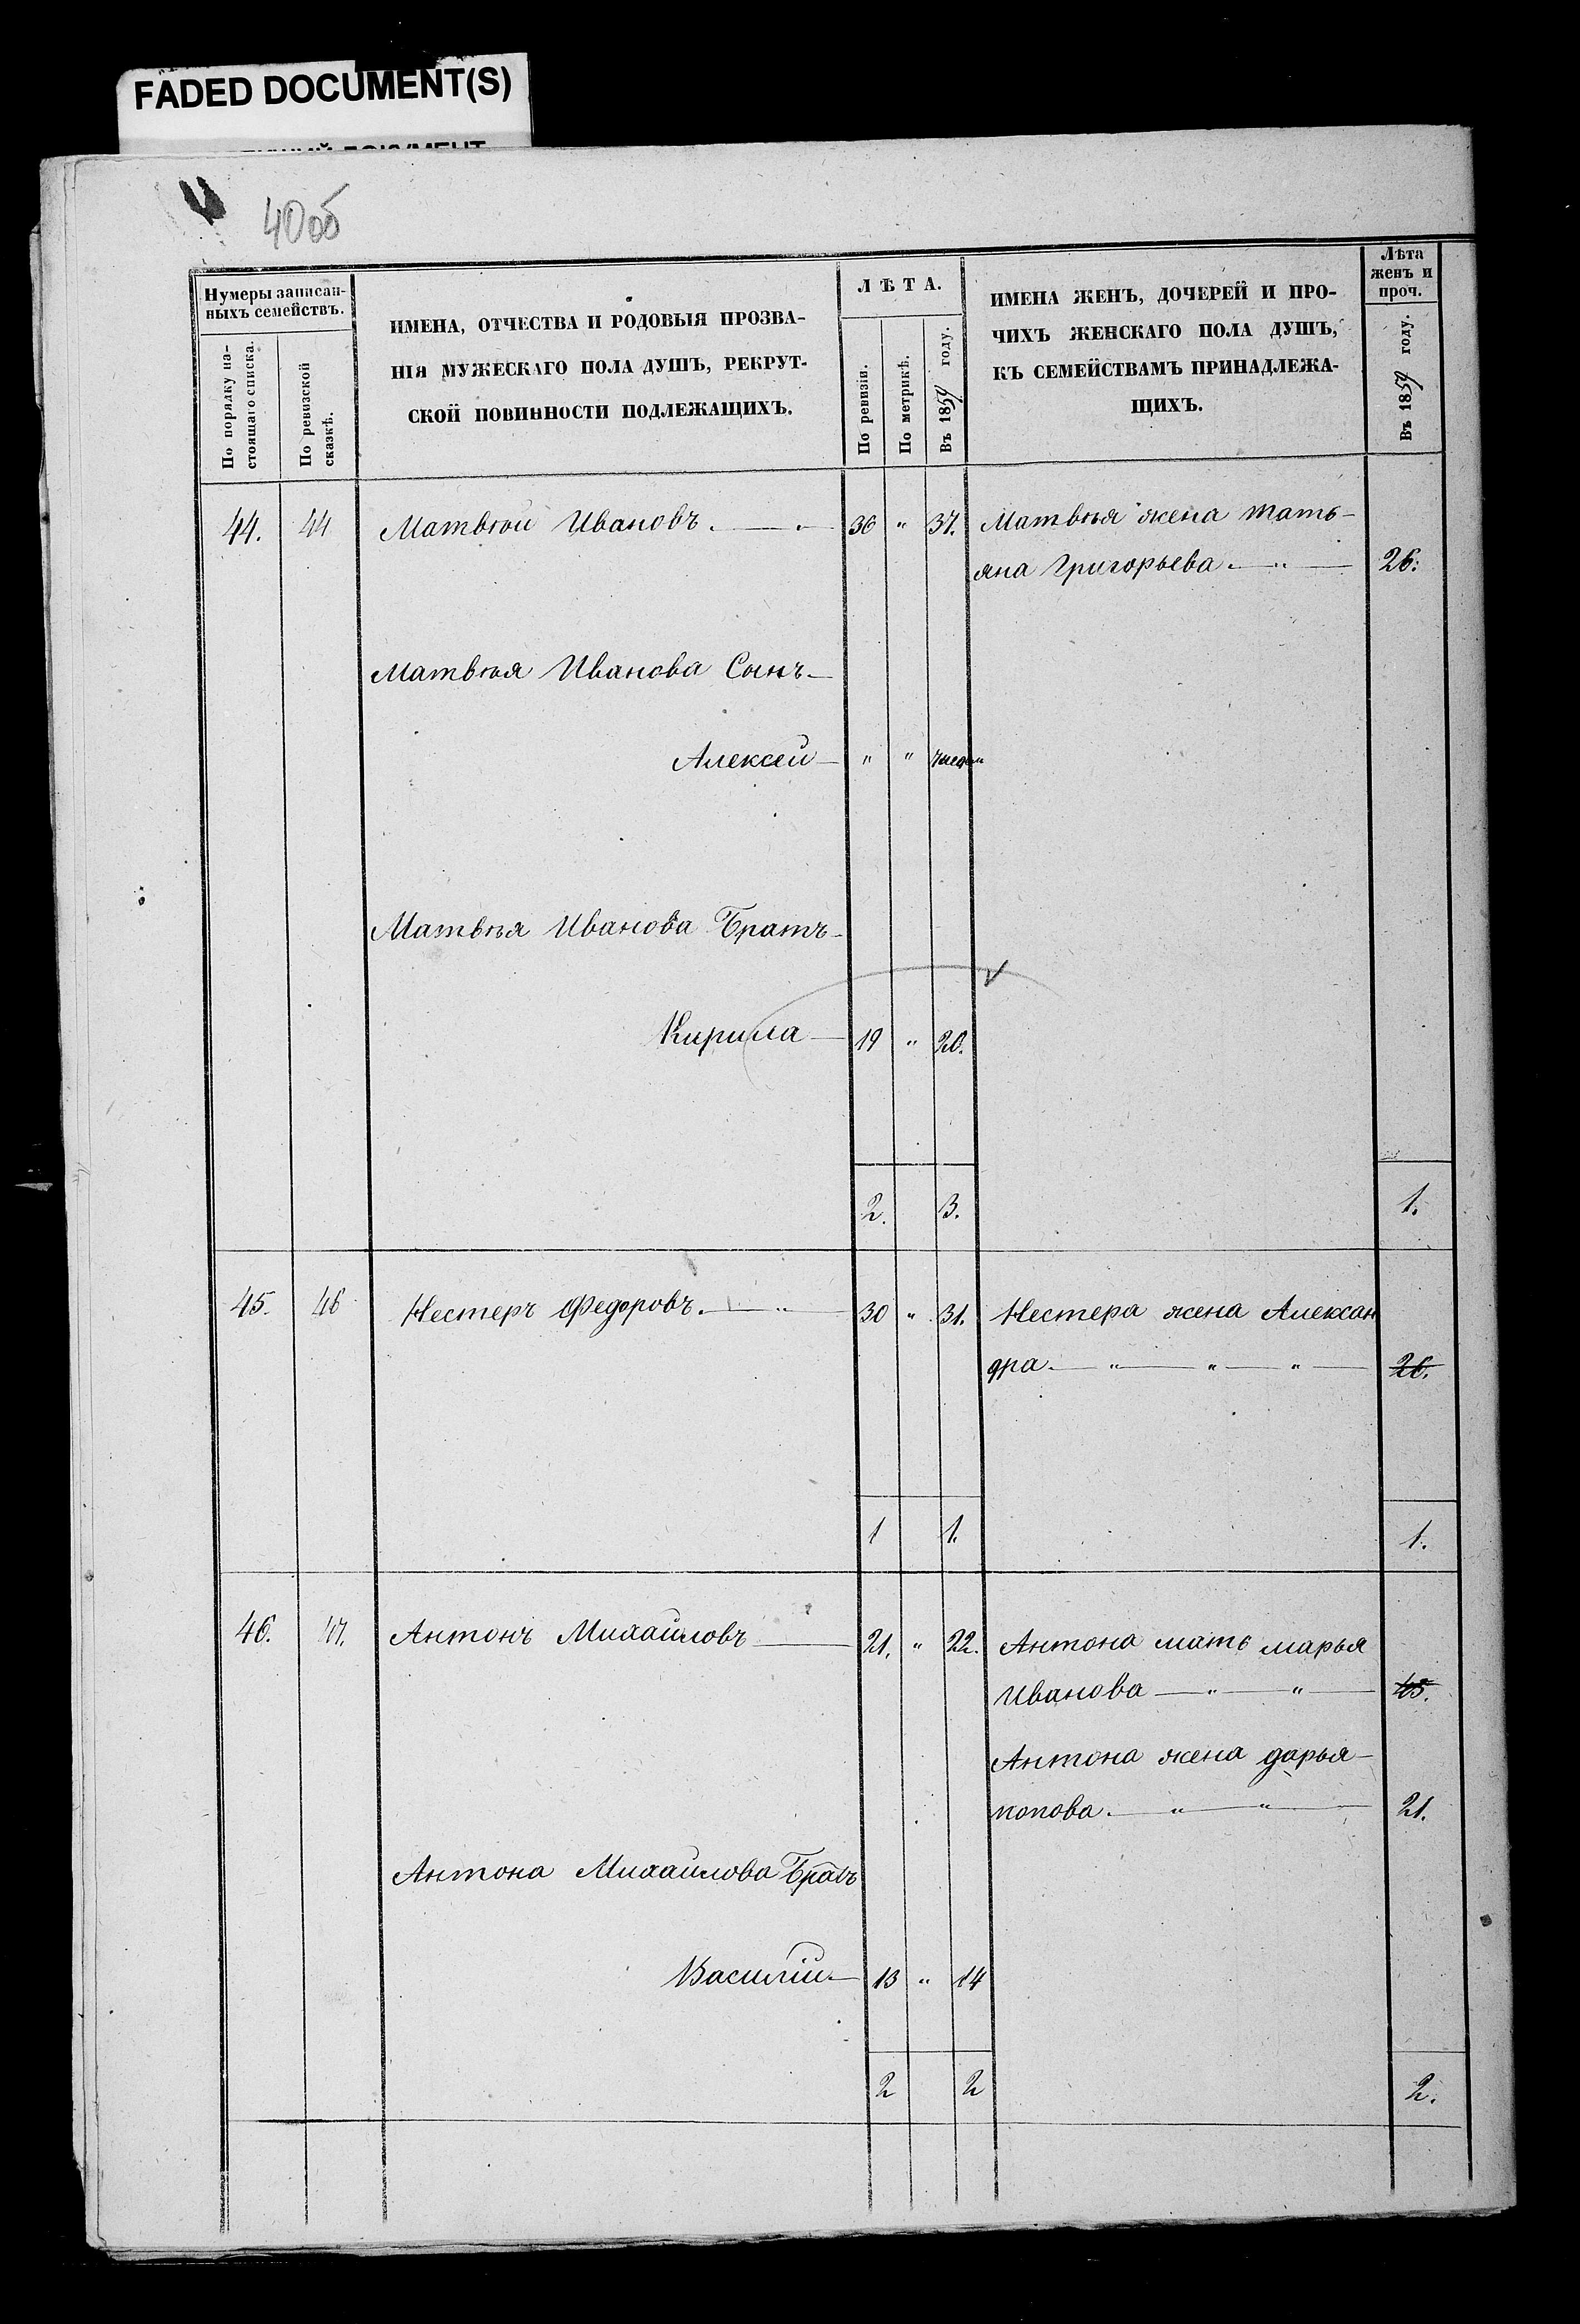 FADED DOCUMENT(S)
40об
Нумеры записан-
ныхъ семействъ.
По порядку на-
стоящаго списка.
По ревизской
сказкѣ.
ИМЕНА, ОТЧЕСТВА И РОДОВЫЯ ПРОЗВА-
НІЯ МУЖЕСКАГО ПОЛА ДУШЪ, РЕКРУТ-
СКОЙ ПОВИННОСТИ ПОДЛЕЖАЩИХЪ.
ЛѢТА.
По ревизіи.
По метрикѣ.
Въ 1859 году.
ИМЕНА ЖЕНЪ, ДОЧЕРЕЙ И ПРО-
ЧИХЪ ЖЕНСКАГО ПОЛА ДУШЪ,
КЪ СЕМЕЙСТВАМЪ ПРИНАДЛЕЖА-
ЩИХЪ.
Лѣта
женъ и
проч.
Въ 1859 году.
44. 44 Матвѣй Ивановъ. — 36 " 37. Матвѣя жена тать-
яна Григорьева — " — 26.
Матвѣя Иванова Сынъ —
Алексей — " "
Матвѣя Иванова Братъ —
Кирила — 19 " 20.
2. 3. 1.
45. 46 Нестеръ Федоровъ. — " — 30 " 31. Нестера жена Алексан
дра — " — " — " — 26.
1 1. 1.
46. 47. Антонъ Михайловъ — 21. " 22. Антона мать марья
Иванова — " — " — 45.
Антона жена дарья —
попова. — " — " — 21.
Антона Михайлова Братъ
Василій — 13 " 14
2 2 2.